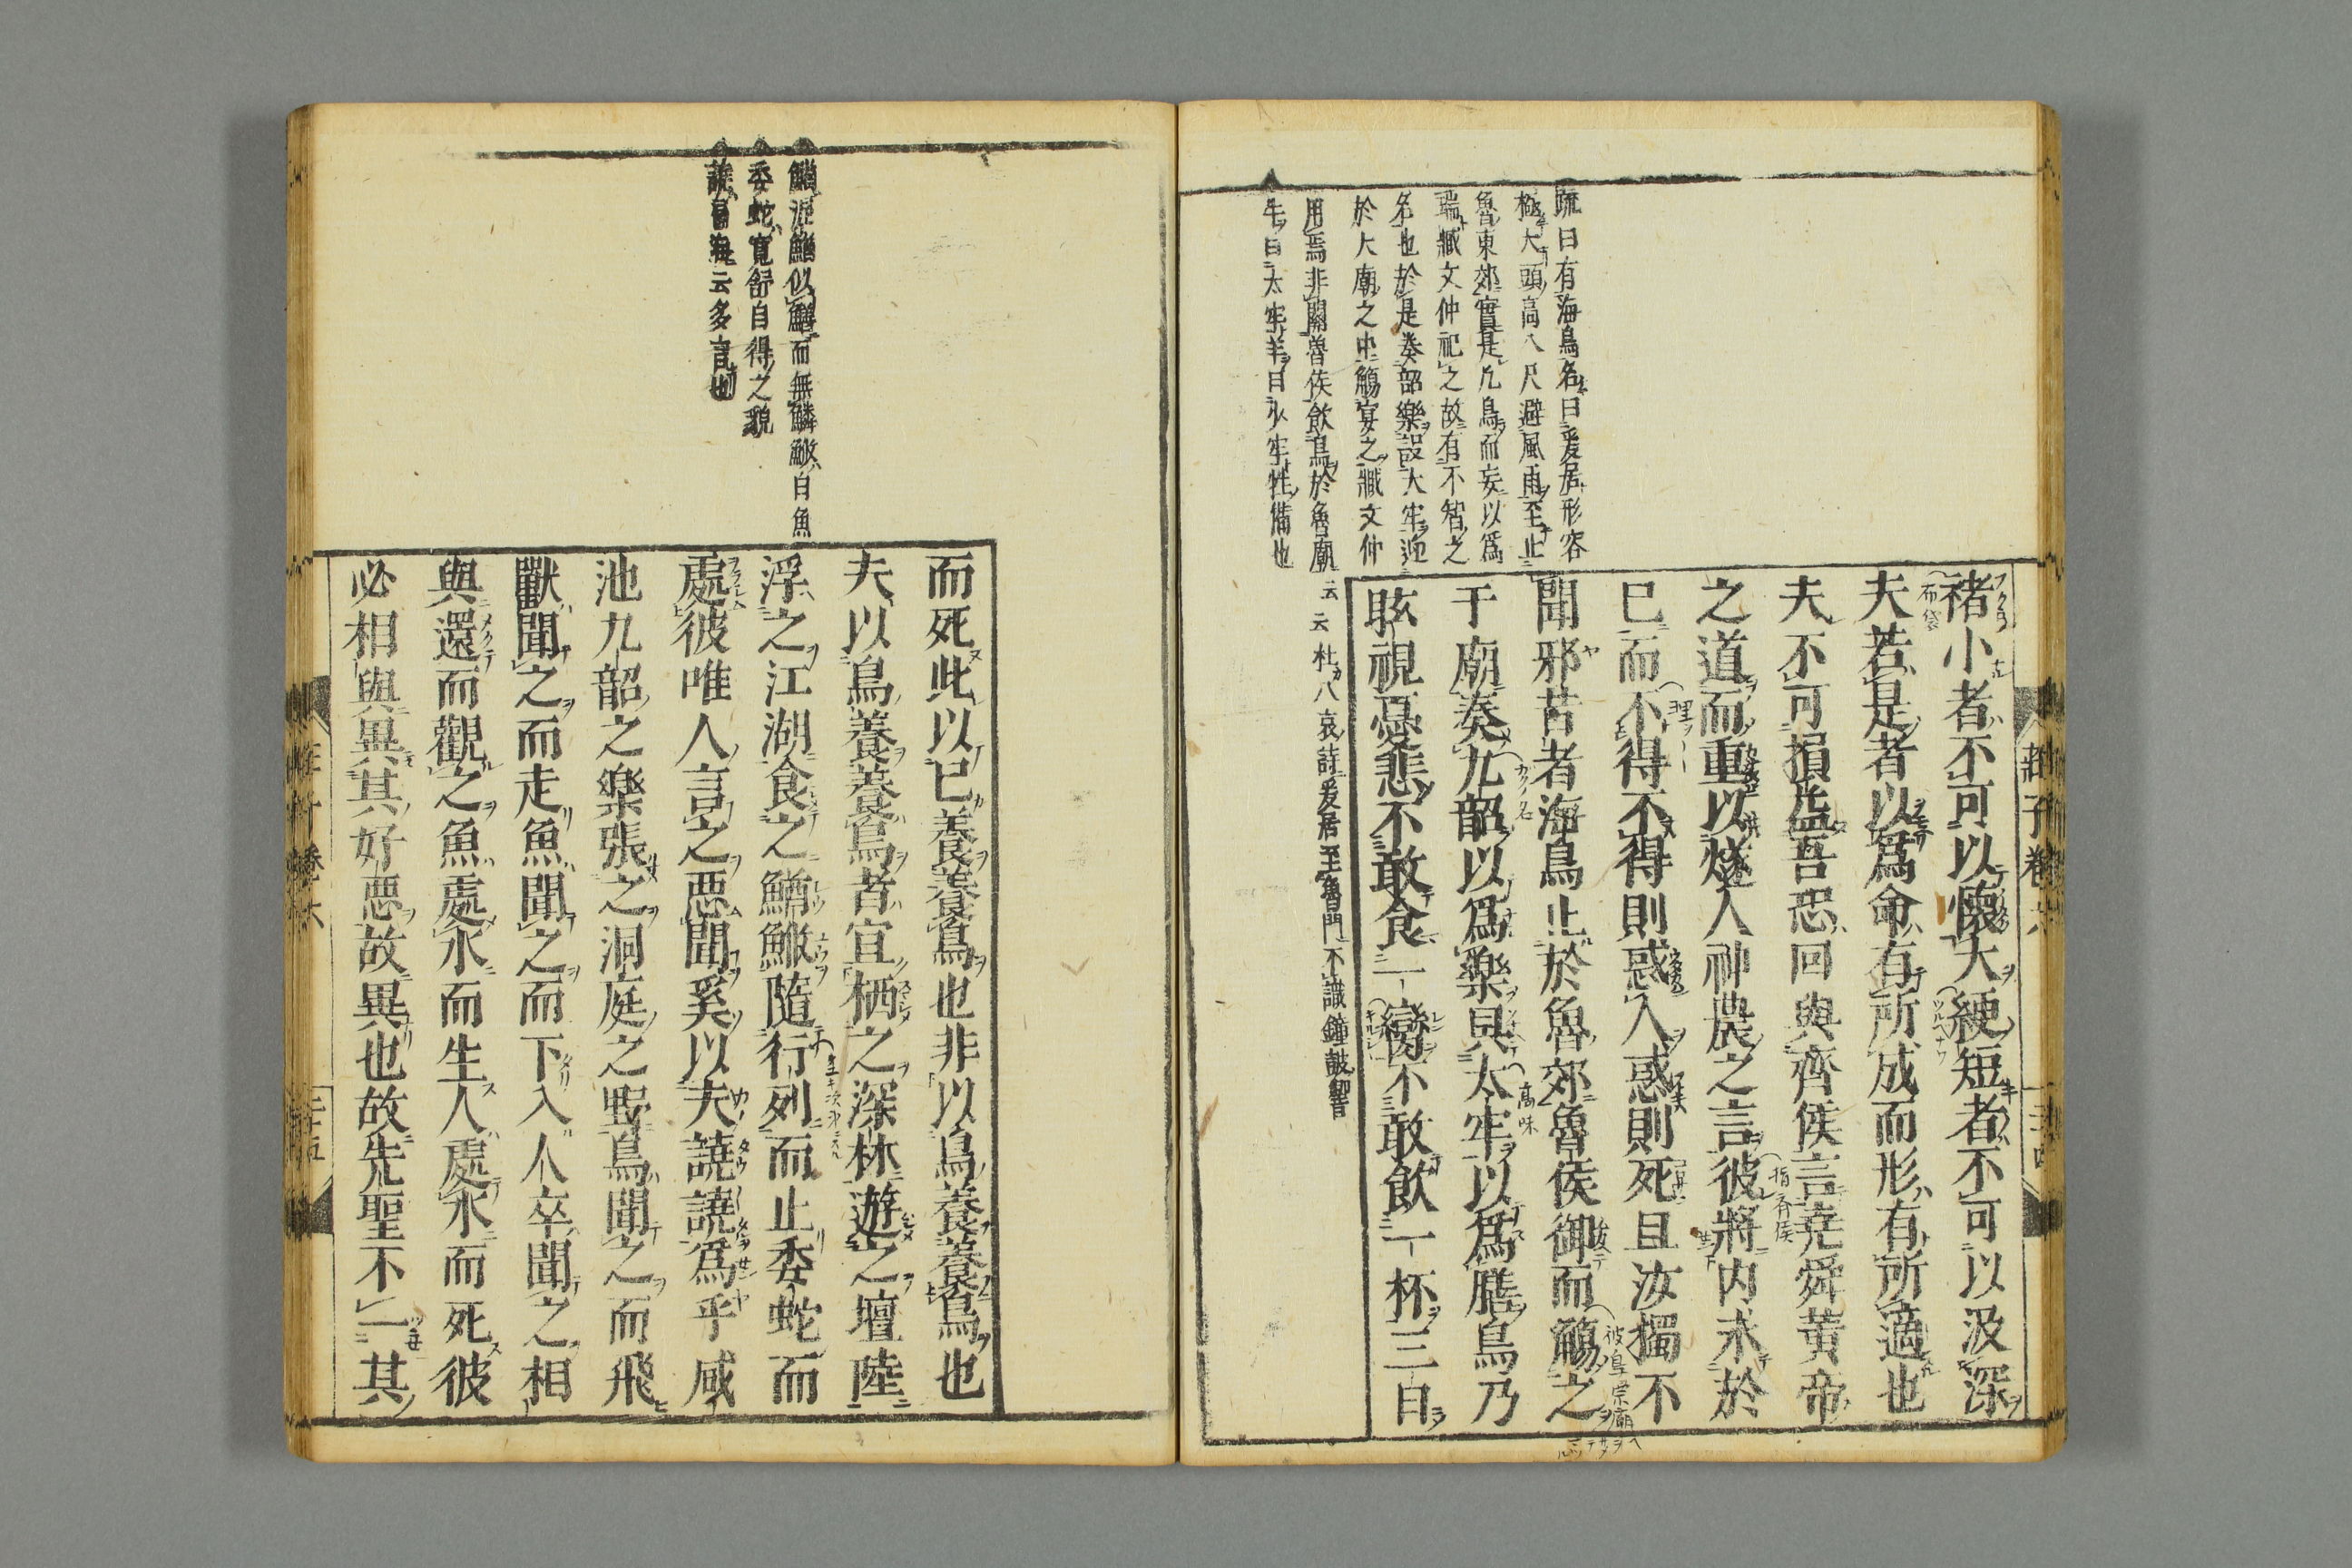 疏曰有海鳥名曰爰居形容
極大頭高八尺避風雨至止
魯東郊實是凡鳥而妄以爲
瑞臧文仲祀之故有不智之
名也於是奏韶樂設大牢迎
於大廟之中觴宴之臧文仲
用焉非關魯侯飲鳥於魯廟云云杜八哀註爰居至魯門不識鐘鼓響
牛曰太牢羊曰少牢牲備也
莊子卷六
褚小者不可以懷大綆短者不可以汲深
夫若是者以爲命有所成而形有所適也
夫不可損益吾恐回與齊侯言堯舜黄帝
之道而重以燧人神農之言彼將内求於
已而不得不得則惑人惑則死且汝獨不
聞邪昔者海鳥止於魯郊魯侯御而觴之
于廟奏九韶以爲樂具太牢以爲膳鳥乃
眩視憂悲不敢食一臠不敢飲一杯三日
鰌泥鰌似鱓而無鱗䱔白魚
委蛇寛舒自得之貌
譊音海云多言也
而死此以已養養鳥也非以鳥養養鳥也
夫以鳥養養鳥者宜栖之深林遊之壇陸
浮之江湖食之鰌䱔隨行列而止委蛇而
處彼唯人言之惡聞奚以夫譊譊爲乎咸
池九韶之樂張之洞庭之野鳥聞之而飛
獸聞之而走魚聞之而下入人卒聞之相
與還而觀之魚處水而生人處水而死彼
必相與異其好惡故異也故先聖不一其